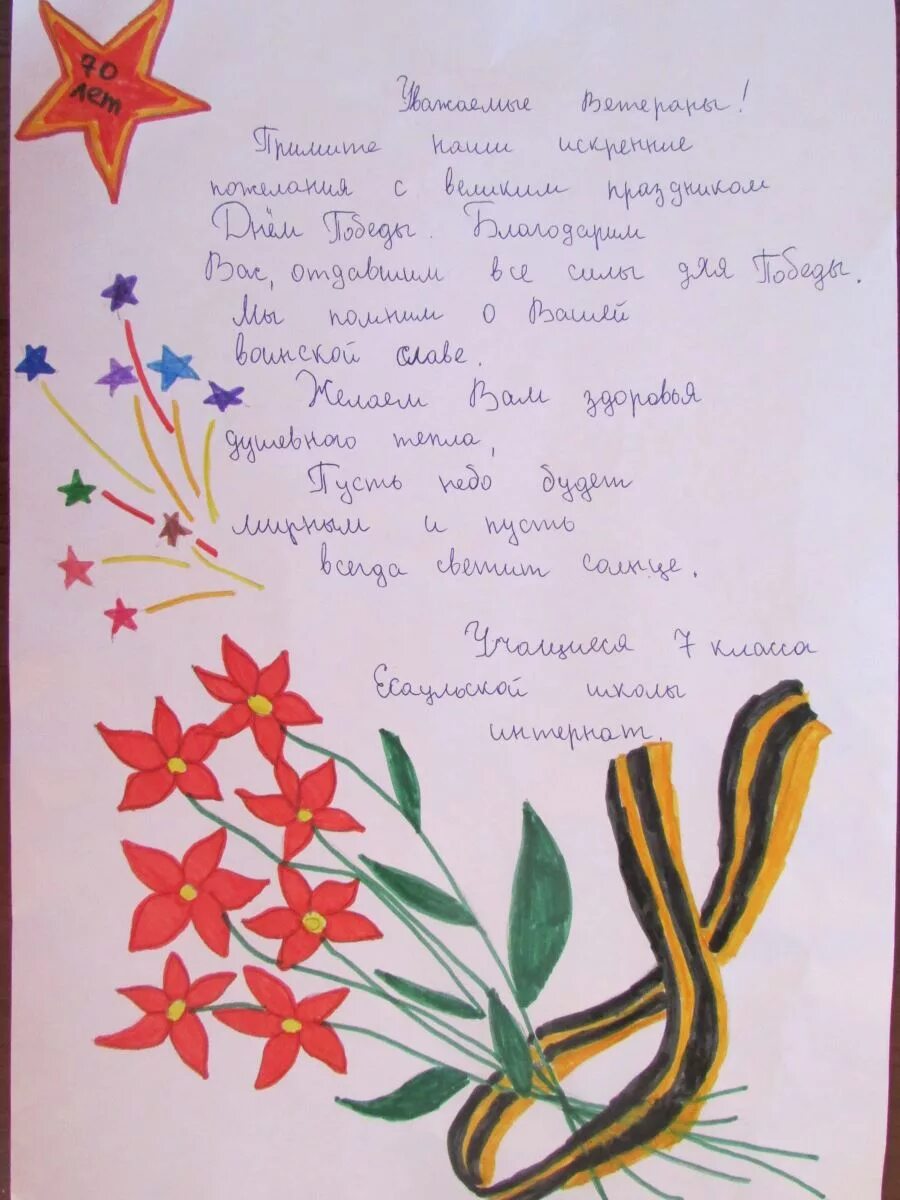 70
лет
Уважаемые Ветераны!
Примите наши искренние
пожелания с великим праздником
Днём Победы. Благодарим
Вас, отдавшим все силы для Победы.
Мы помним о Вашей
воинской славе.
Желаем Вам здоровья
душевного тепла,
Пусть небо будет
мирным и пусть
всегда светит солнце.
Учащиеся 7 класса
Есаульской школы
интернат.